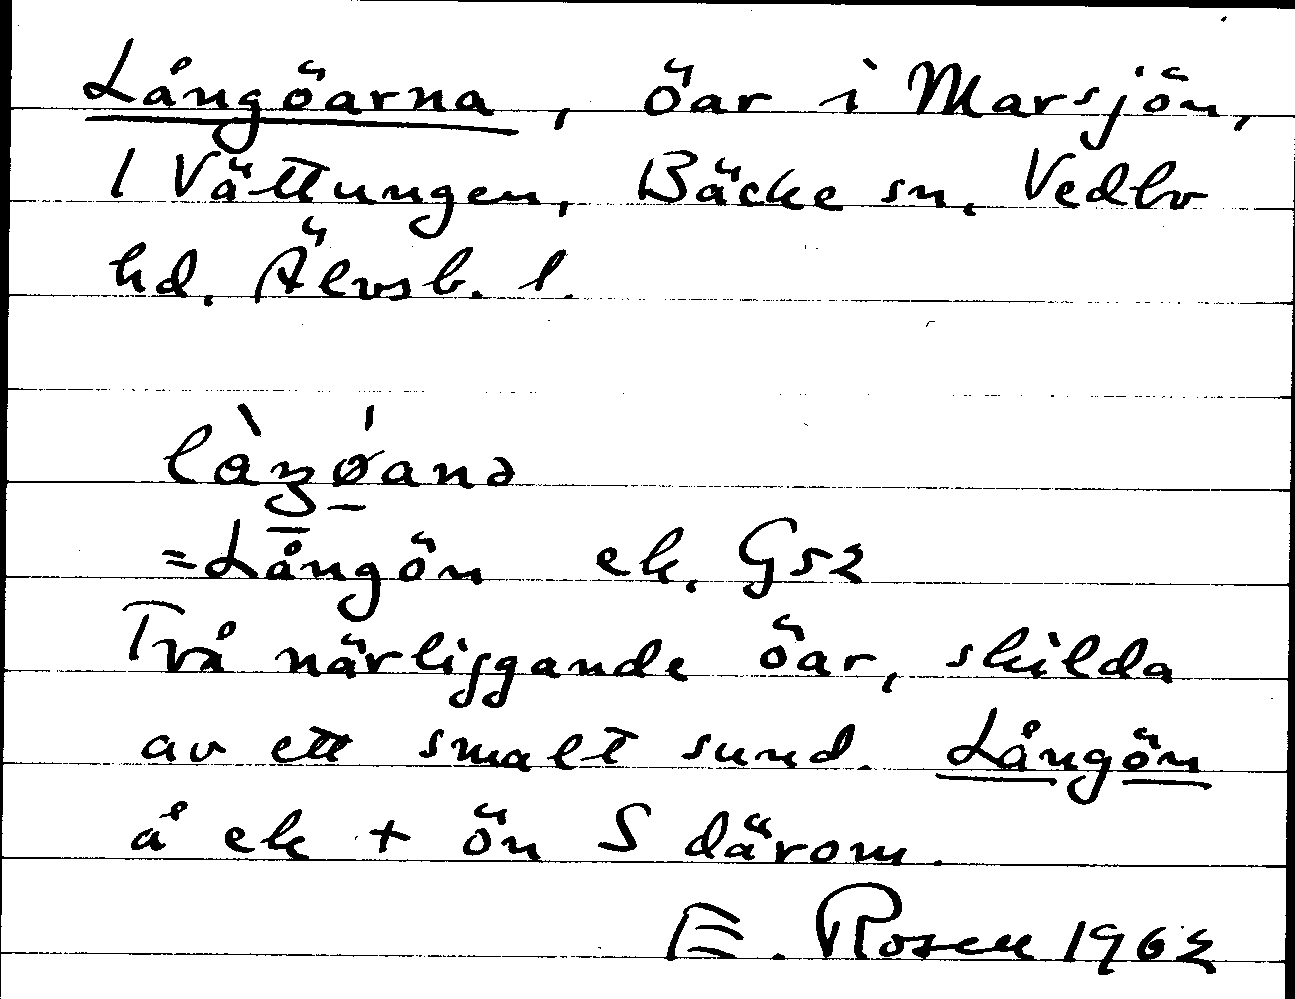 Långöarna, öar i Marsjön,
1 Vättungen, Bäcke sn, Vedbo
hd. Älvsb. l.
làŋǿanə
=Långön ek. G52
Två närliggande öar, skilda
av ett smalt sund. Långön
å ek + ön S därom.
E. Rosell 1962